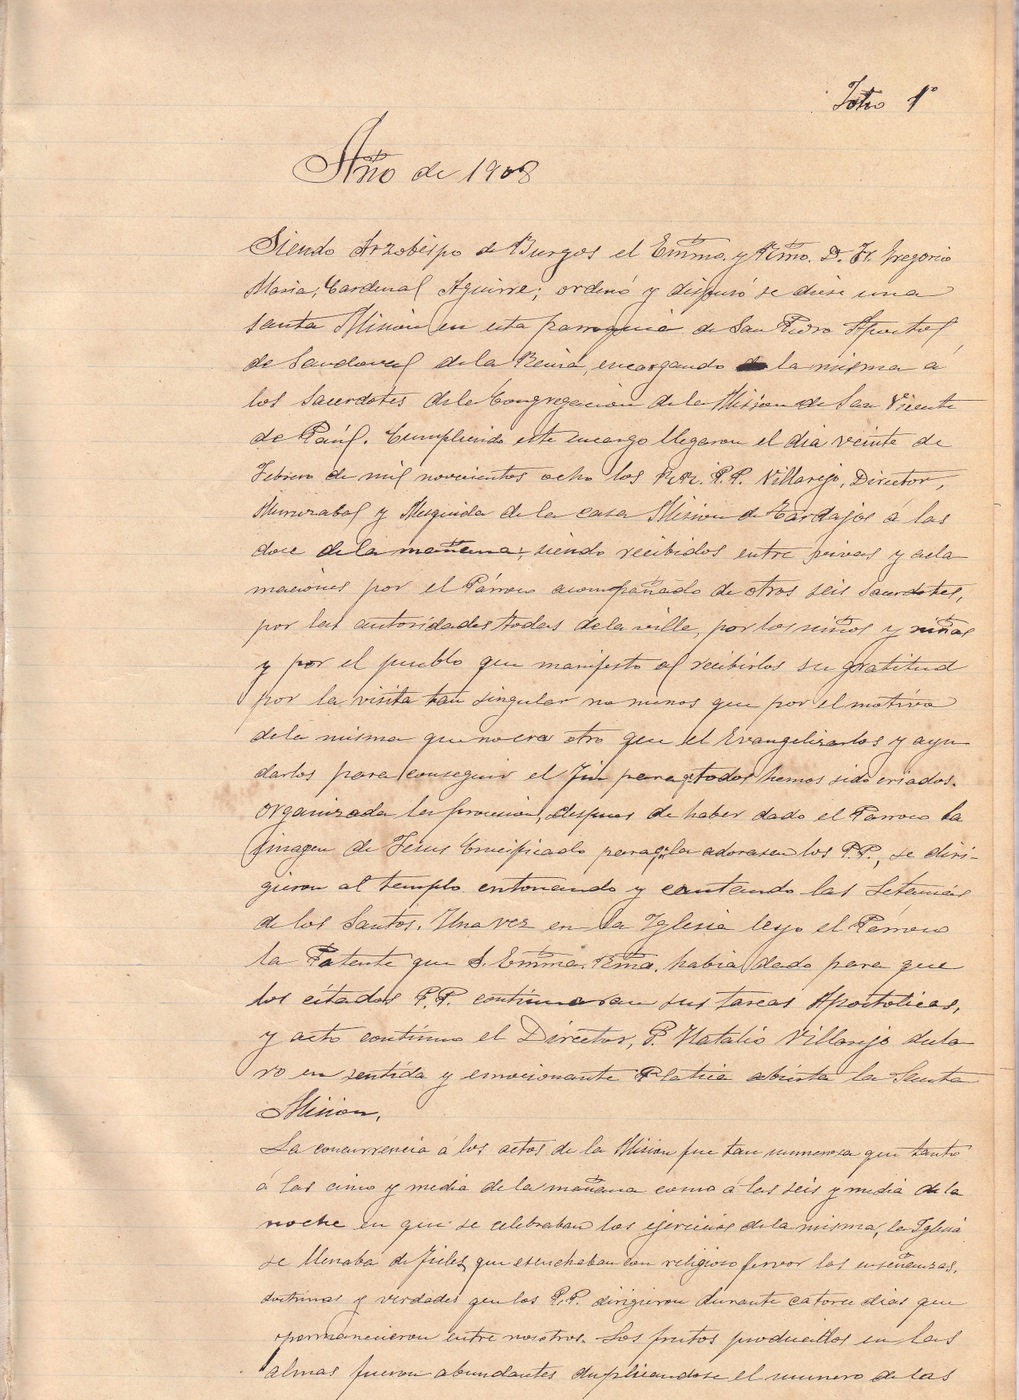 Folio 1º
Año de 1908
Siendo Arzobispo de Burgos el Emmo. y Rmo. D. Fr. Gregorio
Maria, Cardenal Aguirre; ordenó y dispusó se diese una
santa Mision en esta parroquia de San Pedro Apostol
de Sandoval de la Reina, encargando de la misma á
los Sacerdotes de la Congregacion de la Mision de San Vicente
de Paúl. Cumpliendo este encargo llegaron el dia veinte de
Febrero de mil novecientos ocho los P.P. Villarejo, Director,
y Mesquida de la casa Mision de Tardajos á las
doce de la mañana; siendo recibidos entre vivas y acla
maciones por el Párroco acompañado de otros seis Sacerdotes,
por las autoridades todas de la villa, por los niños y niñas
y por el pueblo que manifesto al recibirlos su gratitud
por la visita tan singular no menos que por el motivo
de la misma que no era otro que el Evangelizarlos y ayu
darlos para conseguir el fin para q. todos hemos sido criados.
Organizada la procesion, despues de haber dado el Párroco la
imagen de Jesus Crucificado para q. la adorasen los P.P., se diri-
gieron al templo entonando y cantando las Letanias
de los Santos. Una vez en la Iglesia leyo el Párroco
la Patente que S. Emma. Rma. habia dado para que
los citados P.P. continuaran sus tareas Apostolicas,
y acto continuo el Director, P. Natalio Villarejo decla
ro en sentida y emocionante Platica abierta la Santa
Mision.
La concurrencia á los actos de la Mision fue tan numerosa que tanto
á las cinco y media de la mañana como á las seis y media de la
noche en que se celebraban los ejercicios de la misma, la Iglesia
se llenaba de fieles que escuchaban con religioso fervor las enseñanzas,
doctrinas y verdades que los P.P. dirigieron durante catorce dias que
permanecieron entre nosotros. Los frutos producidos en las
almas fueron abundantes duplicandose el numero de las